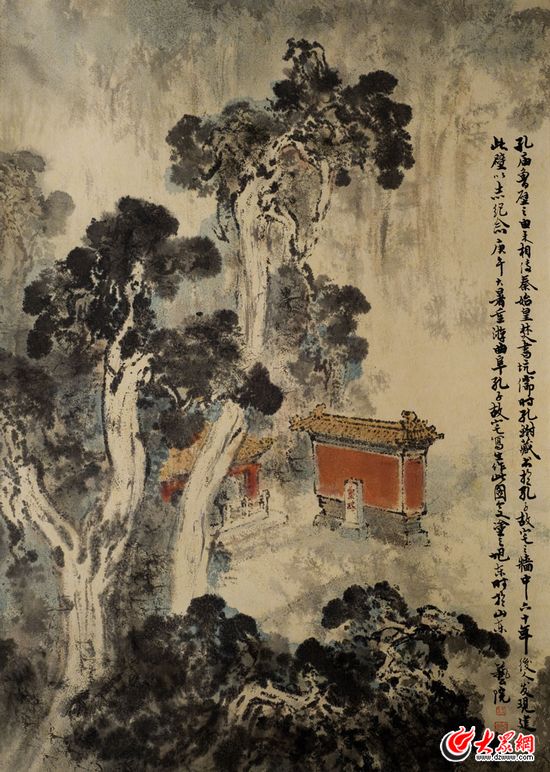 孔庙鲁壁之由来相传秦始皇焚书坑儒时孔鲋藏书於孔子故宅之墙中六十年後人发现建
此壁以志纪念庚午大暑重游曲阜孔子故宅写生作此图
时於山东
藝院
鲁壁
大众网
www.dzwww.com